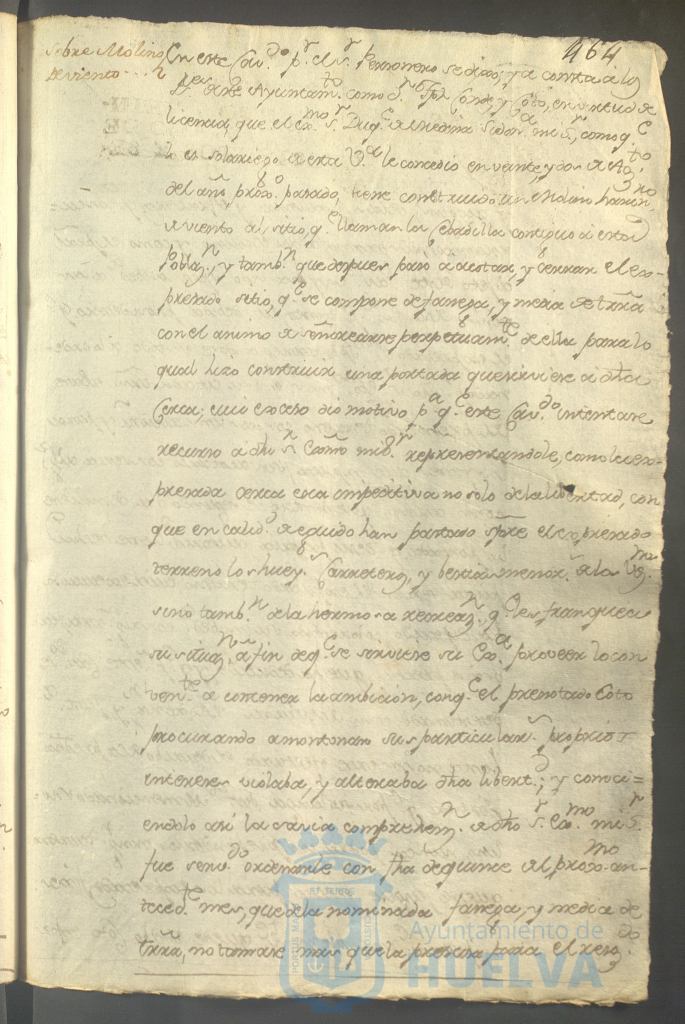 464
Sobre Molino
de viento
En este Cav.do p.r el s.r Peronero se dixo; ya consta a los
de este Ayuntam.to como d.n Conde, y Coto, en virtud de
licencia, que el ex.mo s.r Duq.e de Medina Sidon.a mi s.r, como q.e
lo es solariego de esta V.a le concedio en veinte, y dos de Ag.to
del año prox.o pasado, tiene construido un Molino harin.ro
de viento al sitio, q.e llaman la Cebadilla contiguo a esta
Poblaz.n, y tamb.n que despues paso a acotar, y cerrar el ex-
presado sitio, q.e se compone de fanega, y media de trra
con el animo de señorearse perpetuam.te de ella para lo
qual hizo construir una portada que sirviese a dha
Cerca; cuio exceso dio motivo p.a q.e este Cav.do intentase
recurso a dho s.r Exmo mi s.r representandole, como la ex-
presada cerca era impeditiva no solo de la libertad, con
que en calid.d de exido han pastado spre el expresado
terreno los buey.s Carreteros, y bestias menor.s de la V.a
sino tamb.n de la hermosa recreaz.n q.e les franquea
su situaz.n, a fin de q.e se sirviese su Ex.a proveer lo con
ven.te a contener la ambicion, con q.e el prenotado Coto
procurando amontonar sus particular.s proprios
intereses violaba, y alteraba dha libert.d; y conoci=
endolo asi la savia comprehens.n de dho s.r Ex.mo mi s.r
fue serv.do ordenarle con fha de quince del prox.mo an-
teced.te mes, que de la nominada fanega, y media de
trra, no tomase mas que la precisa para el
Ayuntamiento de
HUELVA